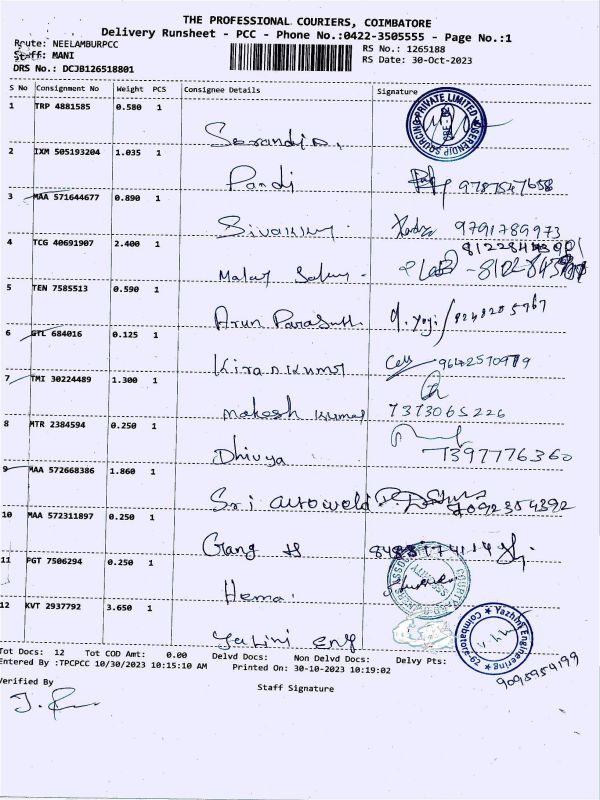 THE PROFESSIONAL COURIERS, COIMBATORE
Delivery Runsheet - PCC - Phone No.:0422-3505555 - Page No.:1
Route: NEELAMBURPCC RS No.: 1265188
Staff: MANI RS Date: 30-Oct-2023
DRS No.: DCJB126518801
S No Consignment No Weight PCS Consignee Details Signature
1 TRP 4881585 0.580 1
SERENDIP SOURCING PRIVATE LIMITED
2 IXM 505193204 1.035 1
Pandi 9787547658
3 MAA 571644677 0.890 1
9791789973
4 TCG 40691907 2.400 1
Malar
5 TEN 7585513 0.590 1
Arun
6 GTL 684016 0.125 1
Kiran Kumar
7 TMI 30224489 1.300 1
makesh kumar 7373065226
8 MTR 2384594 0.250 1
Dhivya 7397776360
9 MAA 572668386 1.860 1
Sri autoworld 7092354392
10 MAA 572311897 0.250 1
Gang
11 PGT 7506294 0.250 1
Hema
12 KVT 2937792 3.650 1
Yalini eng
Yazhini Engineering
Coimbatore-62
Tot Docs: 12 Tot COD Amt: 0.00 Delvd Docs: Non Delvd Docs: Delvy Pts:
Entered By :TPCPCC 10/30/2023 10:15:10 AM Printed On: 30-10-2023 10:19:02
9095954199
Verified By Staff Signature